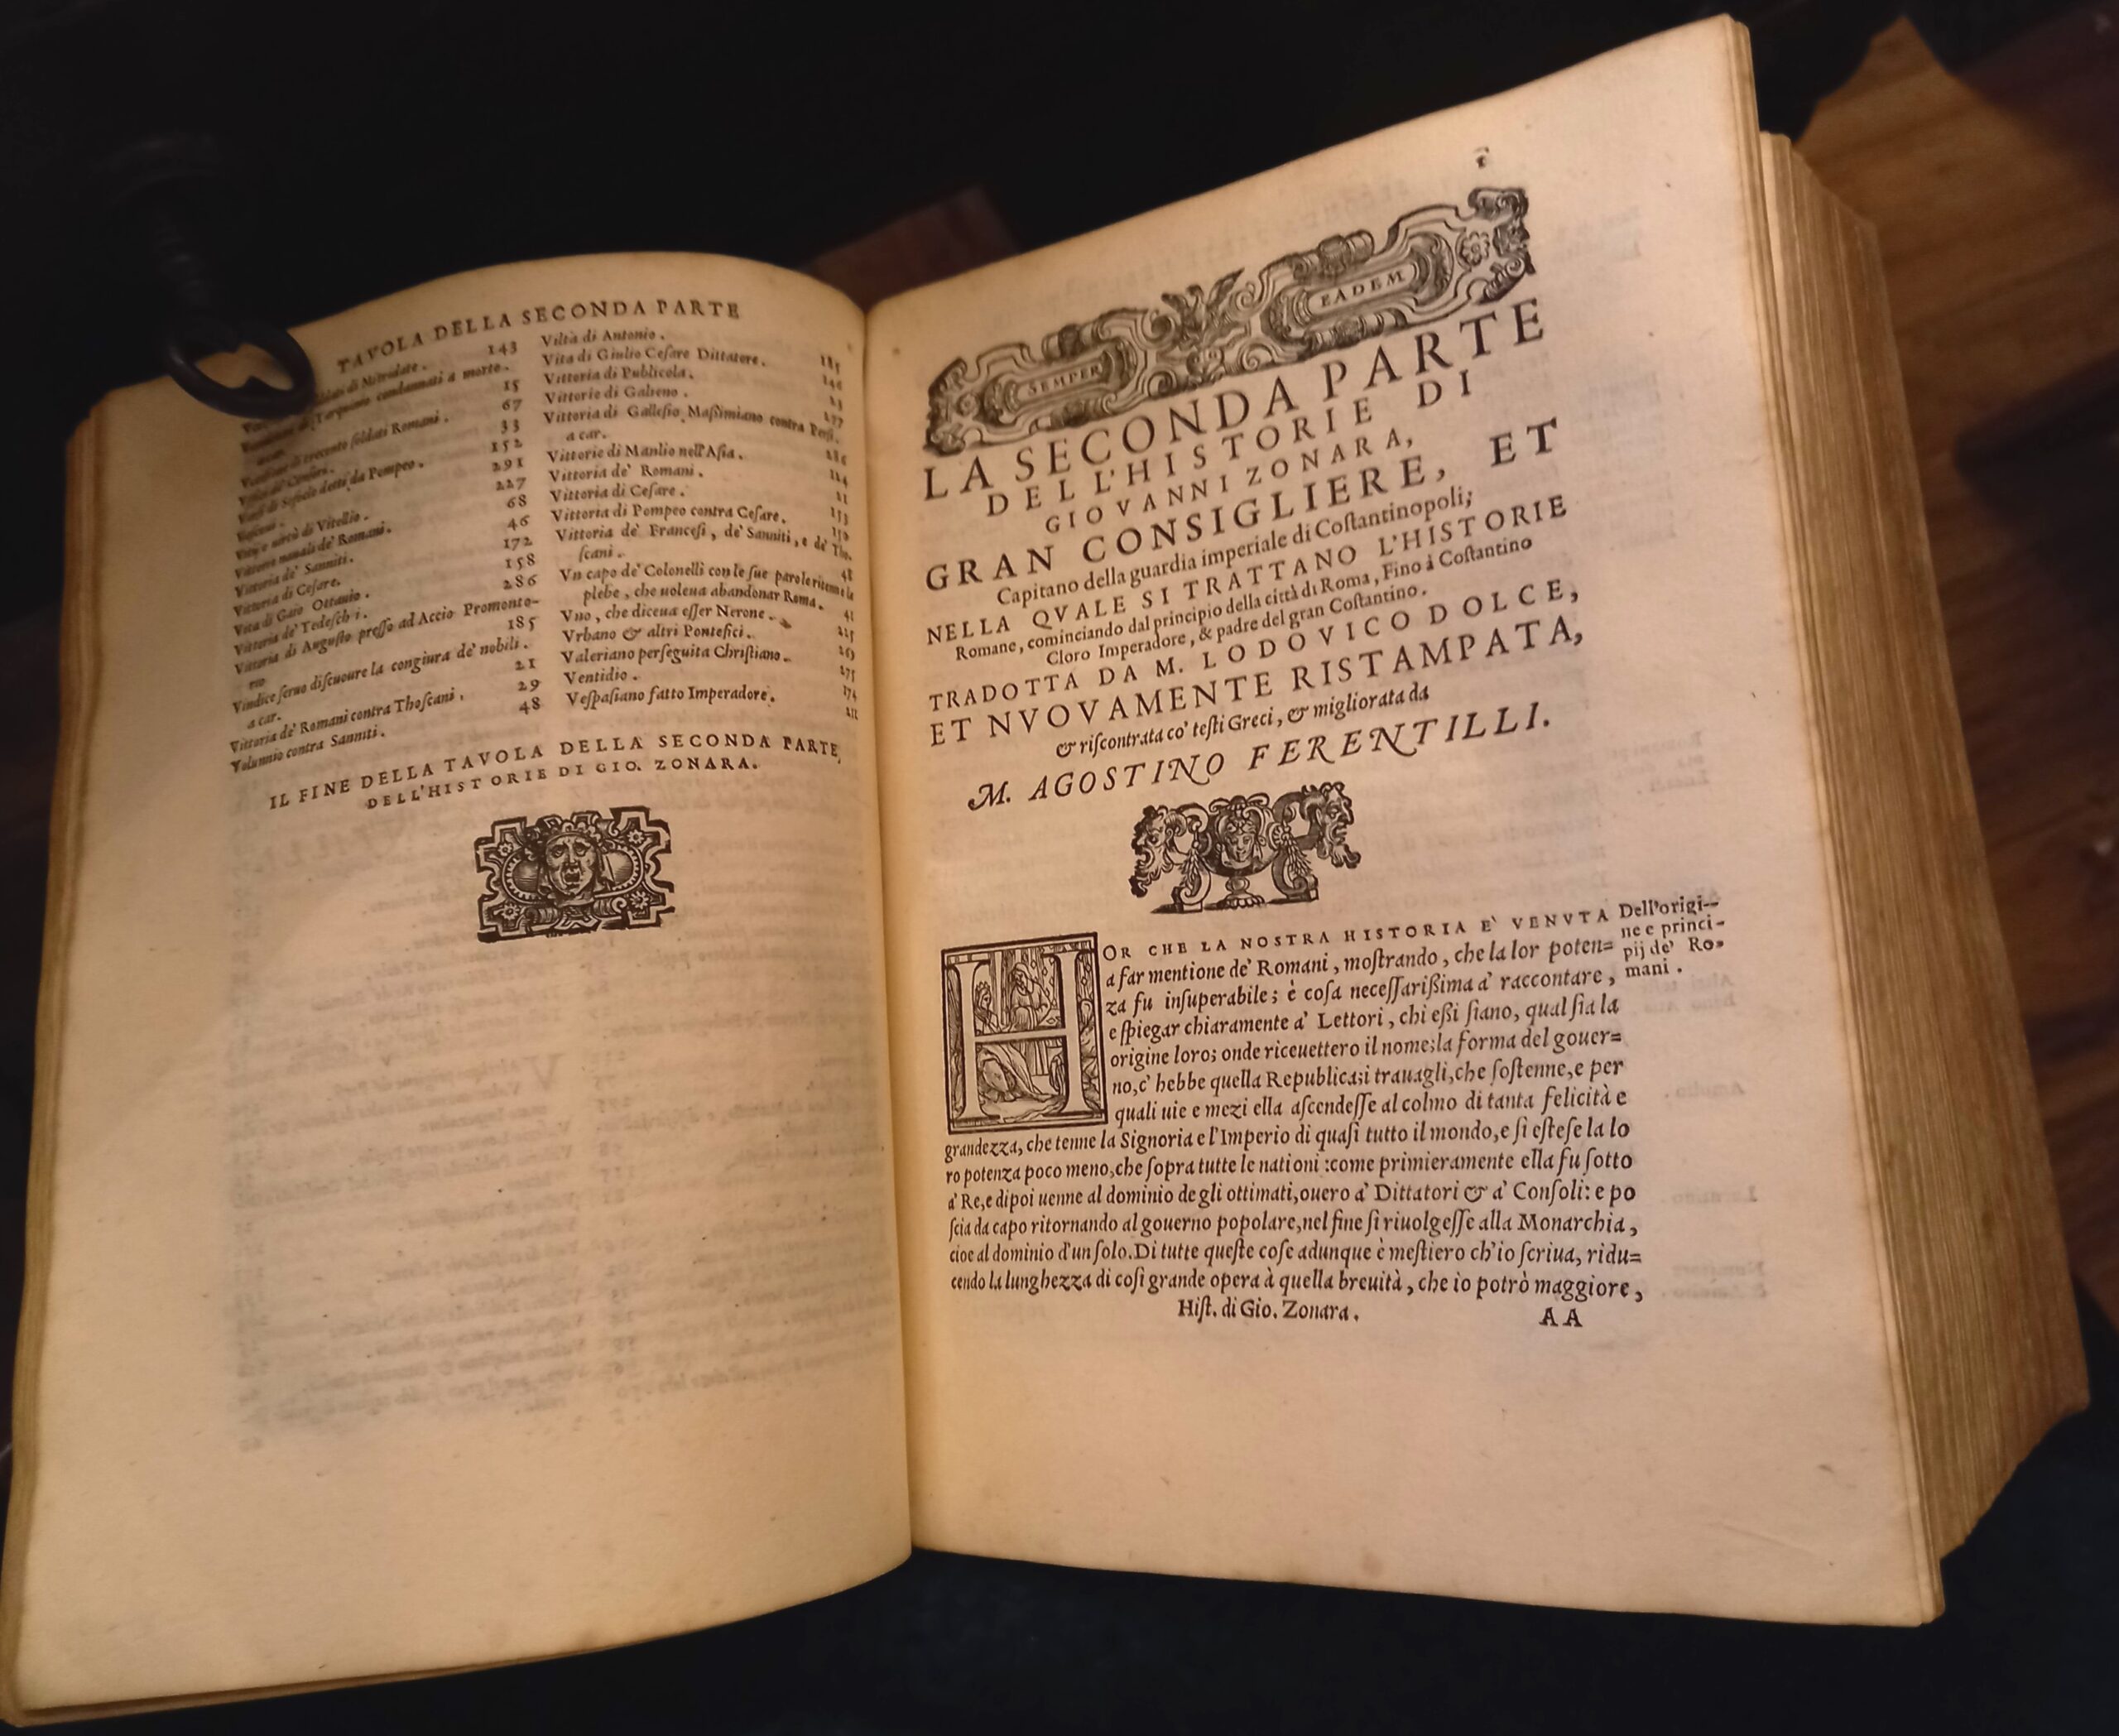 TAVOLA DELLA SECONDA PARTE
di Mitridate. 143
Tarquinio condannati a morte.
15
di trecento soldati Romani. 67
33
detti da Pompeo. 152
291
Vitij e virtù di Vitellio. 227
Vittoria nauale de' Romani. 68
Vittoria de' Sanniti. 46
Vittoria di Cesare. 172
Vita di Gaio Ottauio. 158
Vittoria de' Tedeschi. 286
Vittoria di Augusto presso ad Accio Promonto-
rio 185
Vindice seruo discuoure la congiura de' nobili.
a car. 21
Vittoria de' Romani contra Thoscani. 29
Volunnio contra Sanniti. 48
Viltà di Antonio. 185
Vita di Giulio Cesare Dittatore. 146
Vittoria di Publicola. 23
Vittorie di Galieno. 277
Vittoria di Gallesio Massimiano contra Persi.
a car. 286
Vittorie di Manlio nell'Asia. 124
Vittoria de' Romani. 21
Vittoria di Cesare. 153
Vittoria di Pompeo contra Cesare. 150
Vittoria de' Francesi, de' Sanniti, e de' Tho-
scani. 48
Vn capo de' Colonelli con le sue parole ritenne la
plebe, che uoleua abandonar Roma. 41
Vno, che diceua esser Nerone. 225
Vrbano & altri Pontefici. 269
Valeriano perseguita Christiano. 275
Ventidio. 174
Vespasiano fatto Imperadore.
IL FINE DELLA TAVOLA DELLA SECONDA PARTE,
DELL'HISTORIE DI GIO. ZONARA.
SEMPER EADEM
LA SECONDA PARTE
DELL'HISTORIE DI
GIOVANNI ZONARA,
GRAN CONSIGLIERE, ET
Capitano della guardia imperiale di Costantinopoli;
NELLA QVALE SI TRATTANO L'HISTORIE
Romane, cominciando dal principio della città di Roma, Fino à Costantino
Cloro Imperadore, & padre del gran Costantino.
TRADOTTA DA M. LODOVICO DOLCE,
ET NVOVAMENTE RISTAMPATA,
& riscontrata co' testi Greci, & migliorata da
M. AGOSTINO FERENTILLI.
HOR CHE LA NOSTRA HISTORIA E' VENVTA
a far mentione de' Romani, mostrando, che la lor poten=
za fu insuperabile; è cosa necessarissima a' raccontare,
e spiegar chiaramente a' Lettori, chi essi siano, qual sia la
origine loro; onde riceuettero il nome; la forma del gouer=
no, c' hebbe quella Republica; i trauagli, che sostenne, e per
quali uie e mezi ella ascendesse al colmo di tanta felicità e
grandezza, che tenne la Signoria e l'Imperio di quasi tutto il mondo, e si estese la lo
ro potenza poco meno, che sopra tutte le nationi: come primieramente ella fu sotto
a' Re, e dipoi uenne al dominio de gli ottimati, ouero a' Dittatori & a' Consoli: e po
scia da capo ritornando al gouerno popolare, nel fine si riuolgesse alla Monarchia,
cioe al dominio d'un solo. Di tutte queste cose adunque è mestiero ch'io scriua, ridu=
cendo la lunghezza di così grande opera à quella breuità, che io potrò maggiore,
Dell'origi-
ne e princi-
pij de' Ro-
mani.
Hist. di Gio. Zonara. AA